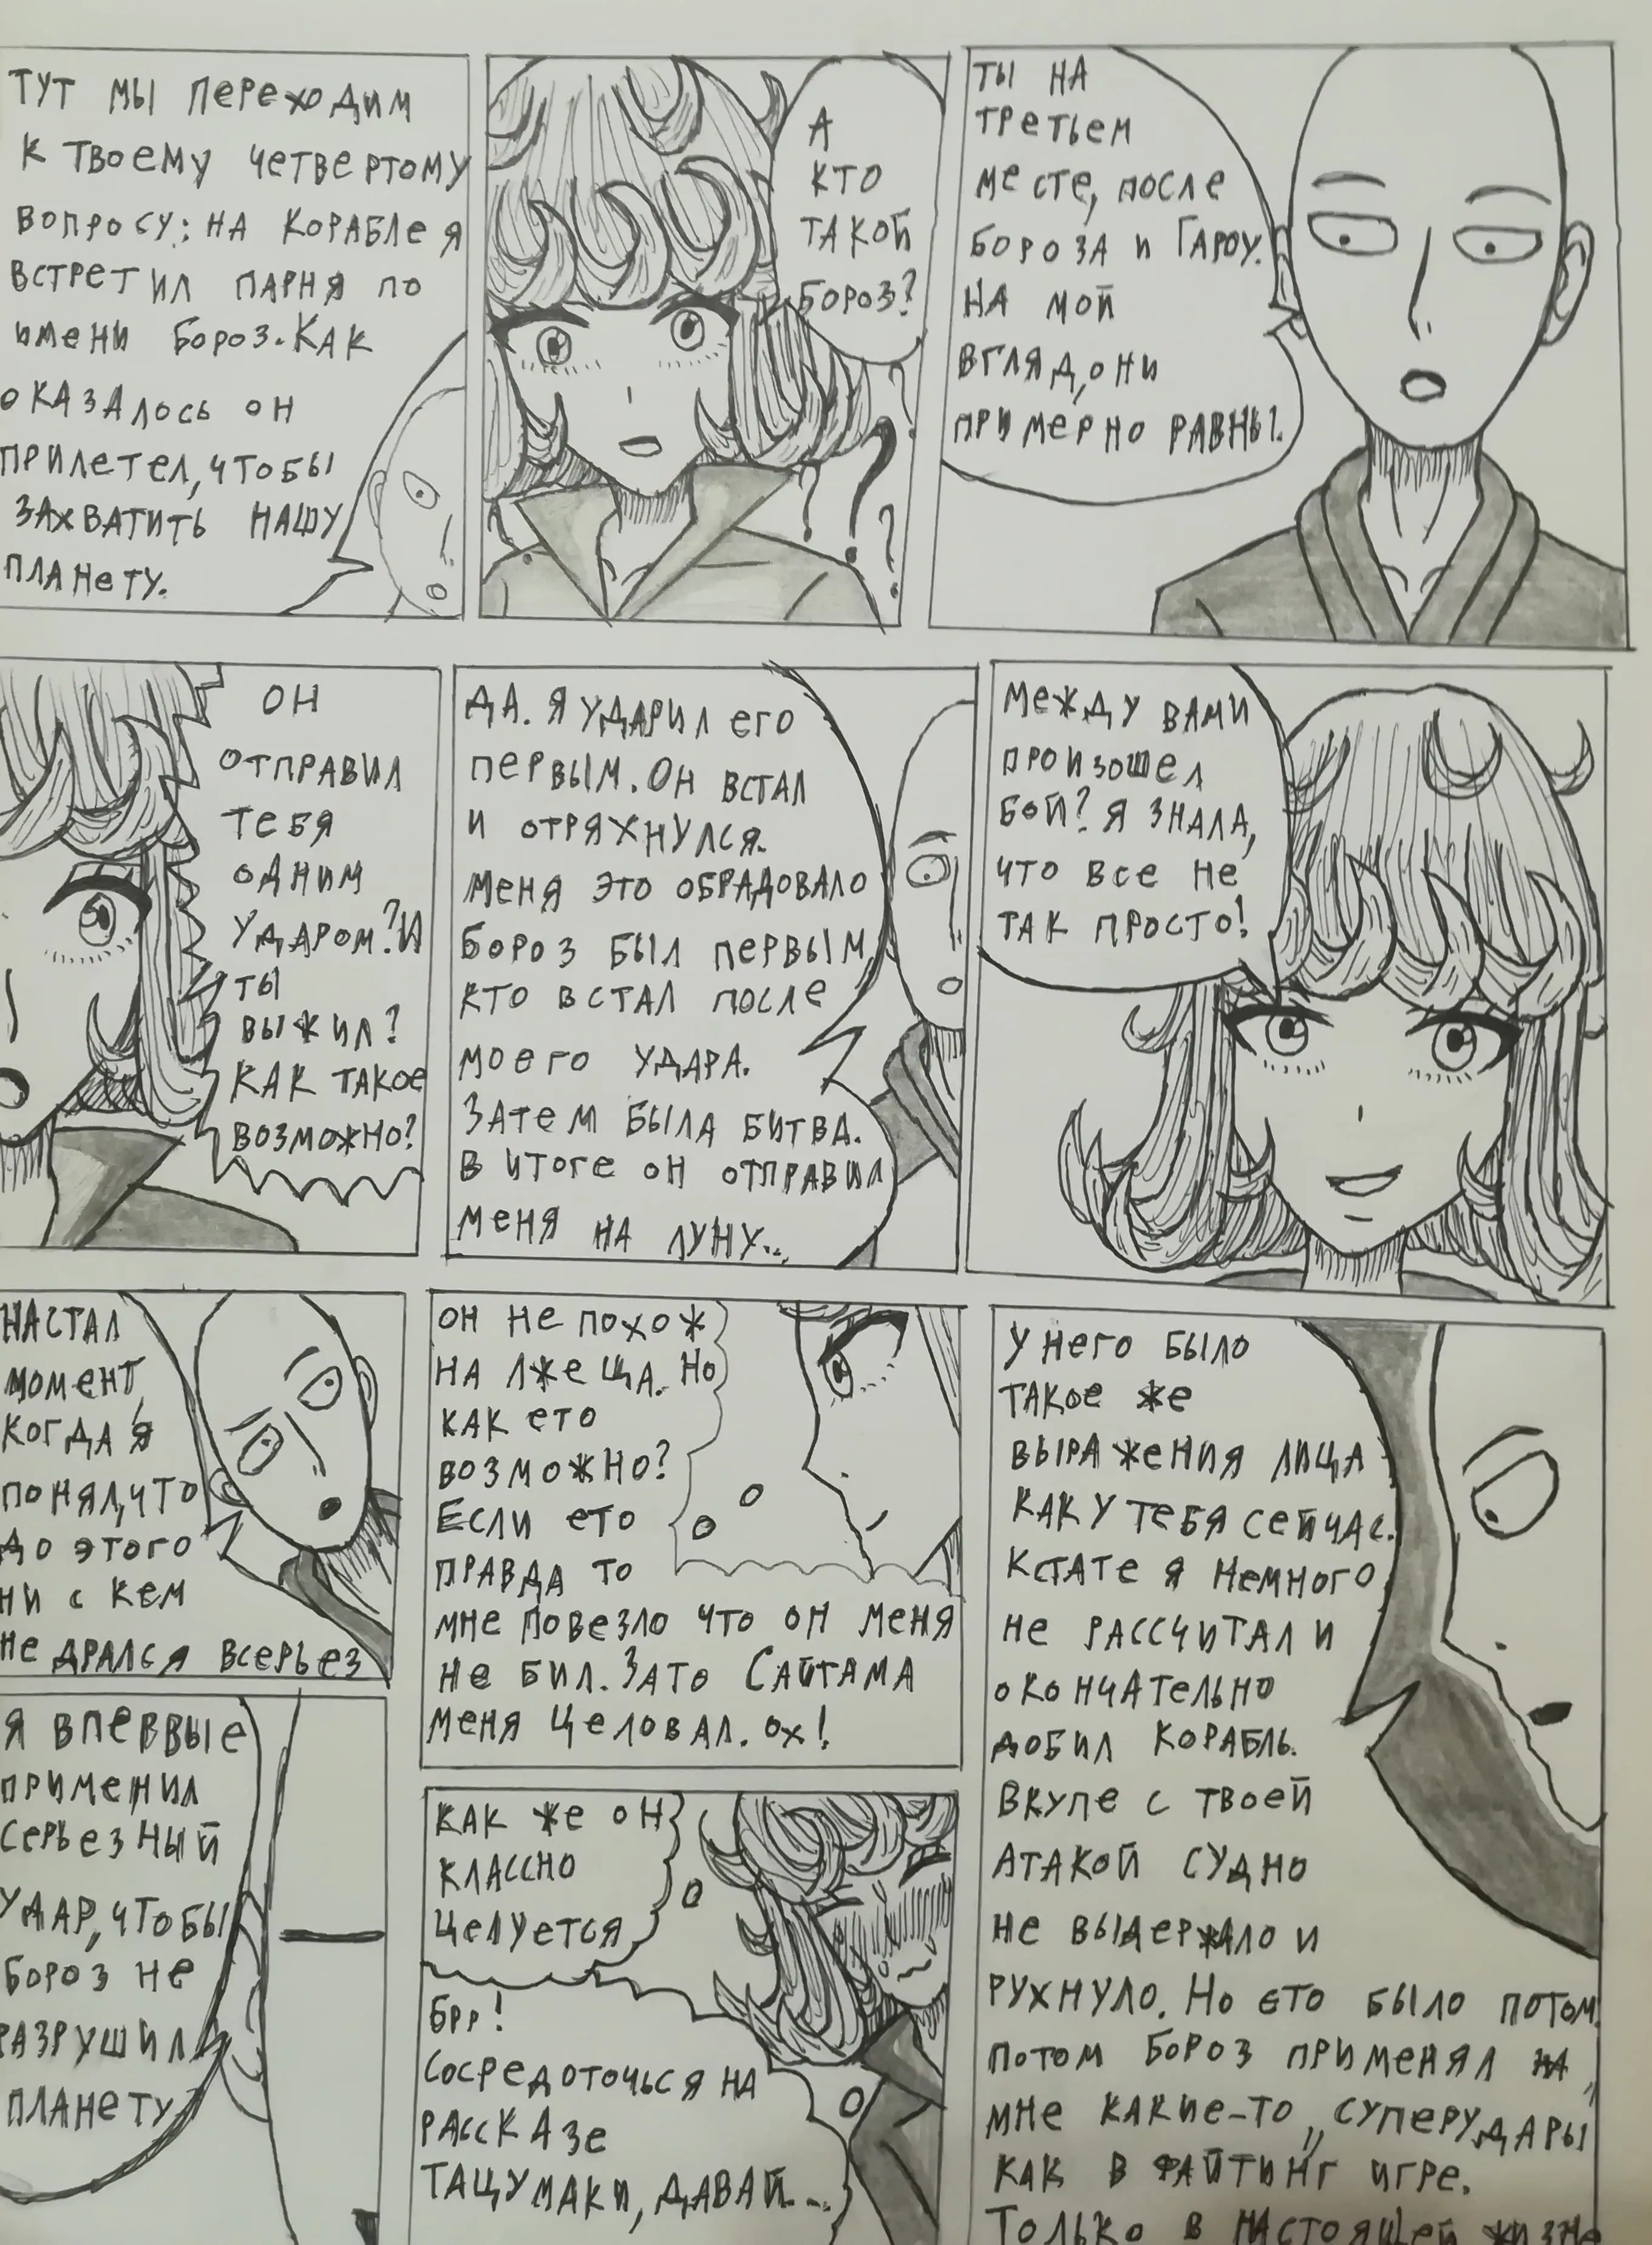 ТЫ НА
ТРЕТЬЕМ
МЕСТЕ, ПОСЛЕ
БОРОЗА И ГАРОУ.
НА МОЙ
ВГЛЯД, ОНИ
ПРИМЕРНО РАВНЫ.
А
КТО
ТАКОЙ
БОРОЗ?
ТУТ МЫ ПЕРЕХОДИМ
К ТВОЕМУ ЧЕТВЕРТОМУ
ВОПРОСУ: НА КОРАБЛЕ Я
ВСТРЕТИЛ ПАРНЯ ПО
ИМЕНИ БОРОЗ. КАК
ОКАЗАЛОСЬ ОН
ПРИЛЕТЕЛ, ЧТОБЫ
ЗАХВАТИТЬ НАШУ
ПЛАНЕТУ.
МЕЖДУ ВАМИ
ПРОИЗОШЕЛ
БОЙ? Я ЗНАЛА,
ЧТО ВСЕ НЕ
ТАК ПРОСТО!
ДА. Я УДАРИЛ ЕГО
ПЕРВЫМ. ОН ВСТАЛ
И ОТРЯХНУЛСЯ.
МЕНЯ ЭТО ОБРАДОВАЛО
БОРОЗ БЫЛ ПЕРВЫМ,
КТО ВСТАЛ ПОСЛЕ
МОЕГО УДАРА.
ЗАТЕМ БЫЛА БИТВА.
В ИТОГЕ ОН ОТПРАВИЛ
МЕНЯ НА ЛУНУ...
ОН
ОТПРАВИЛ
ТЕБЯ
ОДНИМ
УДАРОМ? И
ТЫ
ВЫЖИЛ?
КАК ТАКОЕ
ВОЗМОЖНО?
У НЕГО БЫЛО
ТАКОЕ ЖЕ
ВЫРАЖЕНИЯ ЛИЦА
КАК У ТЕБЯ СЕЙЧАС.
КСТАТЕ Я НЕМНОГО
НЕ РАССЧИТАЛ И
ОКОНЧАТЕЛЬНО
ДОБИЛ КОРАБЛЬ.
ВКУПЕ С ТВОЕЙ
АТАКОЙ СУДНО
НЕ ВЫДЕРЖАЛО И
РУХНУЛО. НО ЕТО БЫЛО ПОТОМ.
ПОТОМ БОРОЗ ПРИМЕНЯЛ НА
МНЕ КАКИЕ-ТО „СУПЕРУДАРЫ"
КАК В ФАЙТИНГ ИГРЕ.
ТОЛЬКО В НАСТОЯЩЕЙ ЖИЗНЕ
ОН НЕ ПОХОЖ
НА ЛЖЕЦА. НО
КАК ЕТО
ВОЗМОЖНО?
ЕСЛИ ЕТО
ПРАВДА ТО
МНЕ ПОВЕЗЛО ЧТО ОН МЕНЯ
НЕ БИЛ. ЗАТО САЙТАМА
МЕНЯ ЦЕЛОВАЛ. ОХ!
КАК ЖЕ ОН
КЛАССНО
ЦЕЛУЕТСЯ
БРР!
СОСРЕДОТОЧЬСЯ НА
РАССКАЗЕ
ТАЦУМАКИ, ДАВАЙ...
НАСТАЛ
МОМЕНТ,
КОГДА Я
ПОНЯЛ, ЧТО
ДО ЭТОГО
НИ С КЕМ
НЕ ДРАЛСЯ ВСЕРЬЕЗ
Я ВПЕРВЫЕ
ПРИМЕНИЛ
СЕРЬЕЗНЫЙ
УДАР, ЧТОБЫ
БОРОЗ НЕ
РАЗРУШИЛ
ПЛАНЕТУ